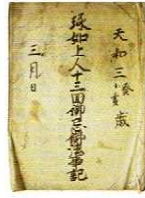 天和三癸亥歳
琢如上人十三回御忌御法事記
三月日